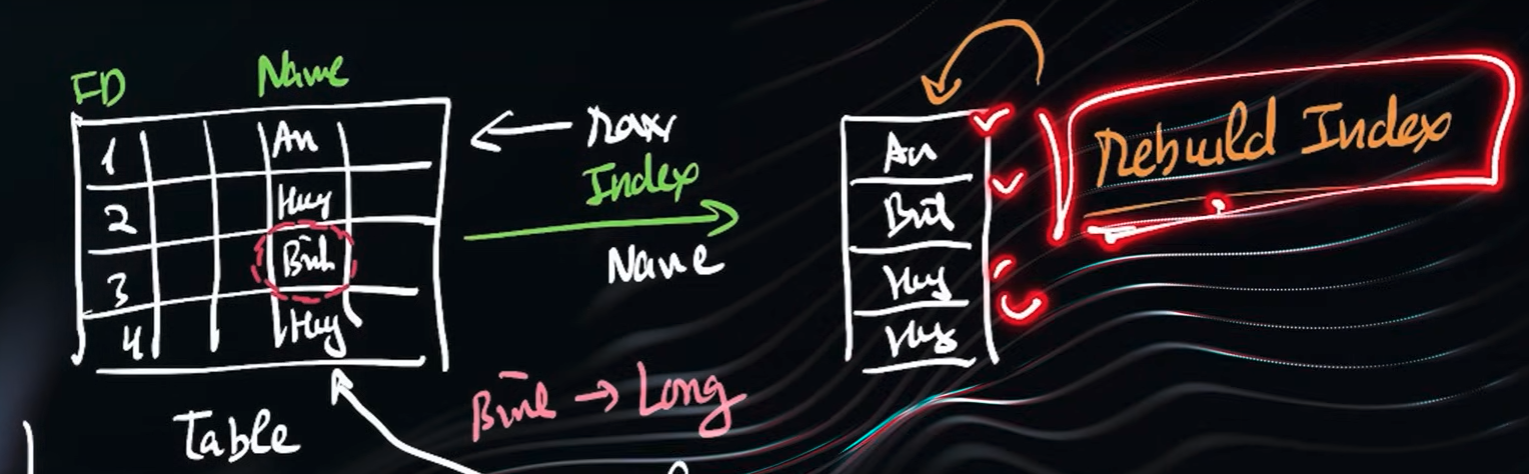 ID Name
1 An
2 Huy
3 Bình
4 Huy
Table
← row
Index
Name
Bình → Long
An
Bình
Huy
Huy
Rebuild Index